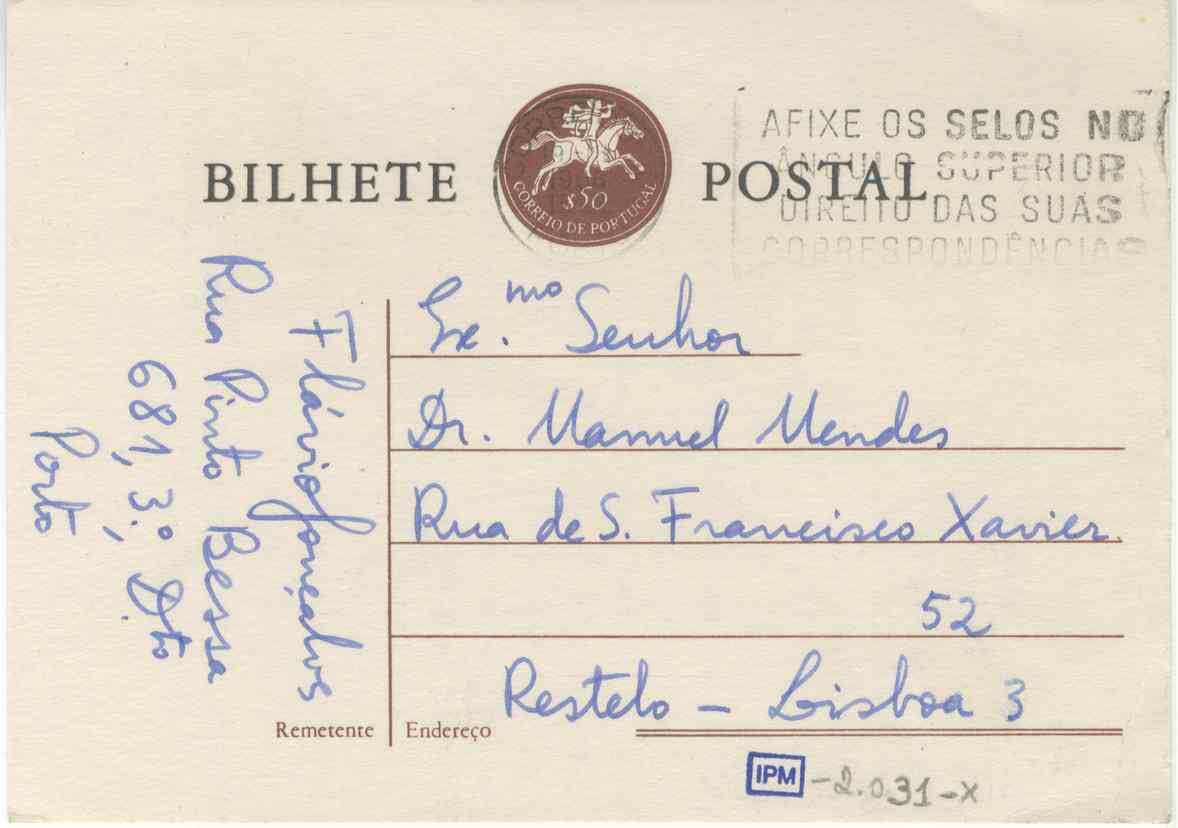 BILHETE POSTAL
$50
CORREIO DE PORTUGAL
AFIXE OS SELOS NO
ÂNGULO SUPERIOR
DIREITO DAS SUAS
CORRESPONDÊNCIAS
Flávio Gonçalves
Rua Pinto Bessa
681, 3.º D.to
Porto
Remetente
Ex.mo Senhor
Dr. Manuel Mendes
Rua de S. Francisco Xavier.
52
Restelo - Lisboa 3
Endereço
IPM -2.031-X